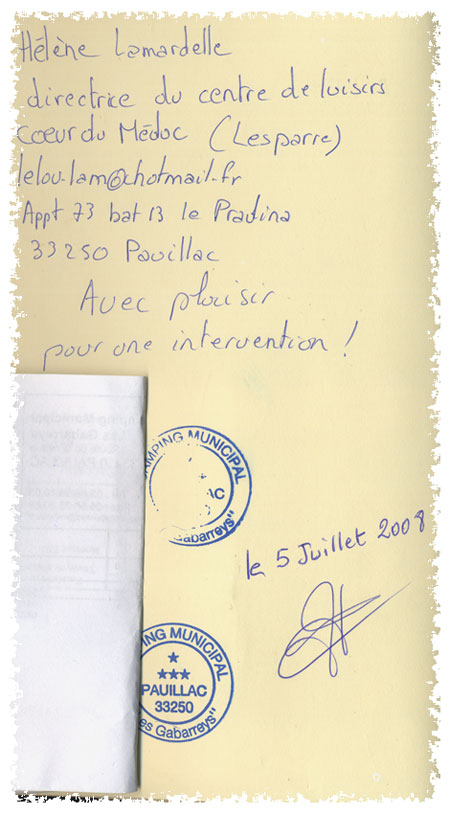 Hélène Lamardelle
directrice du centre de loisirs
Coeur du Médoc (Lesparre)
lelou.lam@hotmail.fr
Appt 73 bat 13 le Pradina
33250 Pauillac
Avec plaisir
pour une intervention !
AMPING MUNICIPAL
AC
Gabarreys"
le 5 Juillet 2008
PING MUNICIPAL
PAUILLAC
33250
es Gabarreys"